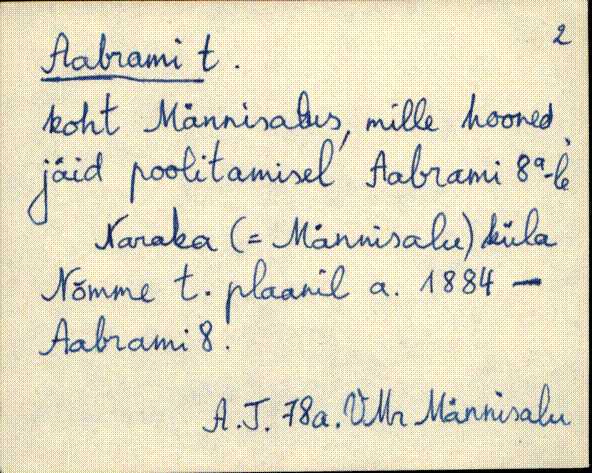 2
Aabrami t.
koht Männisalus, mille hooned
jäid poolitamisel Aabrami 8ª-le
Naraka (= Männisalu) küla
Nõmme t. plaanil a. 1884 —
Aabrami 8.
A.J. 78a. VMr Männisalu